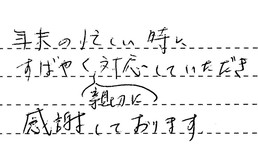 年末の忙しい時に
すばやく対応していただき
親切に
感謝しております